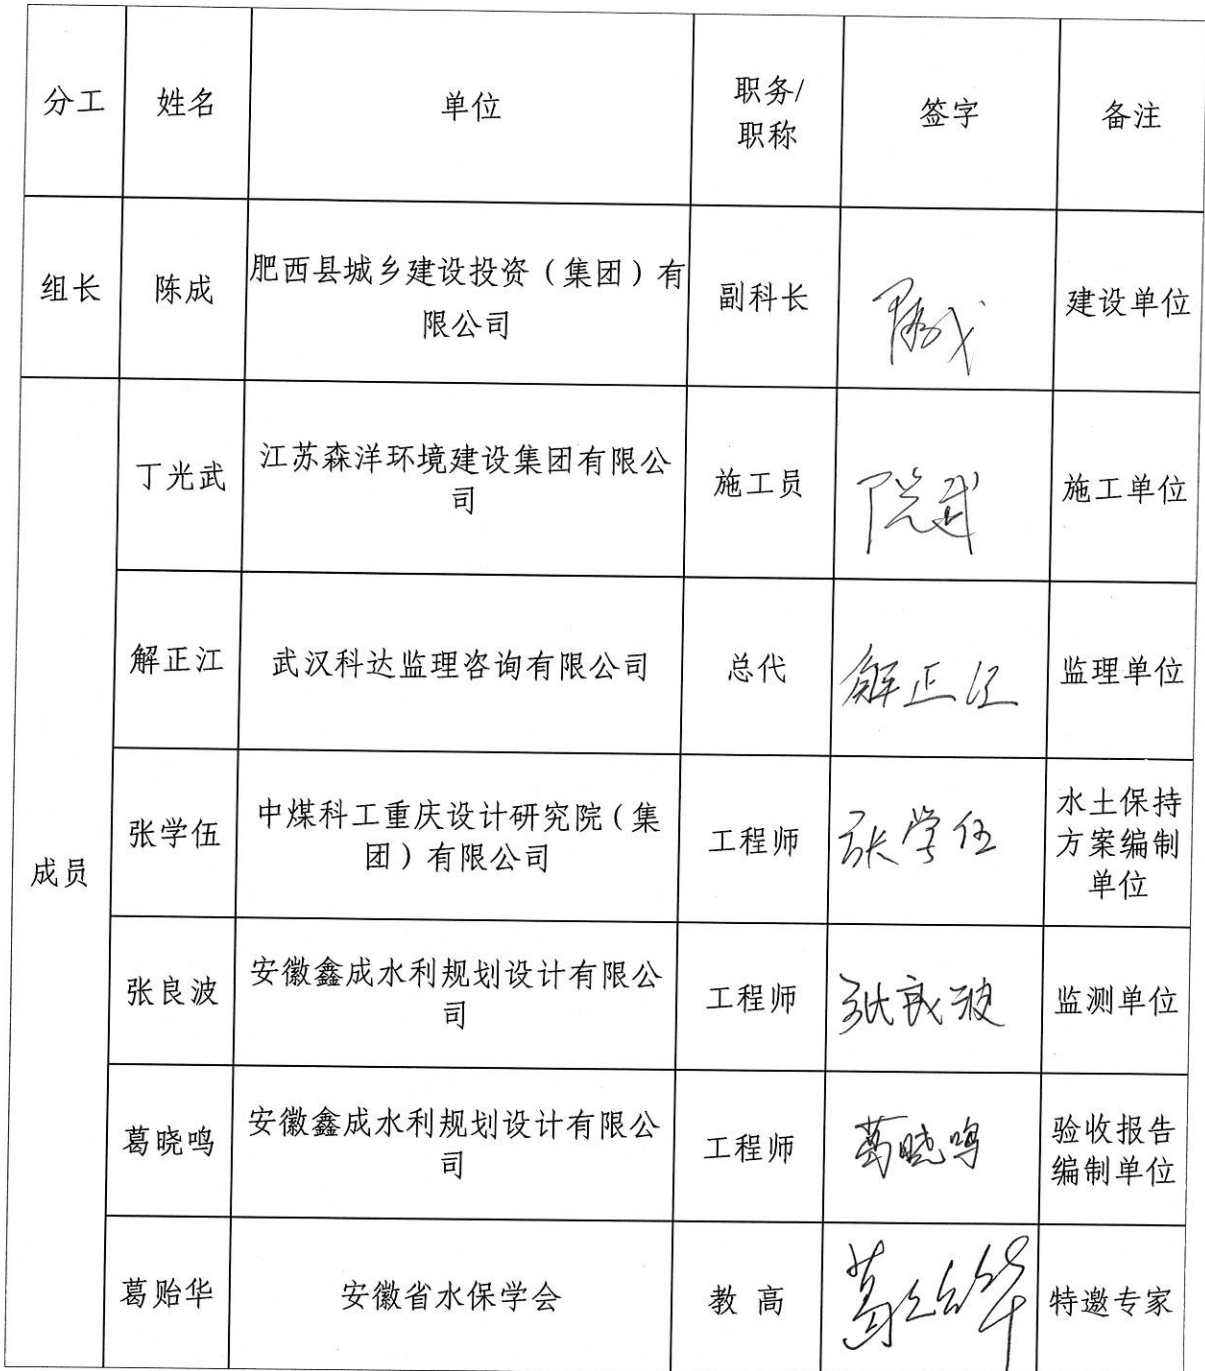 分工 姓名 单位 职务/职称 签字 备注
组长 陈成 肥西县城乡建设投资（集团）有限公司 副科长 陈成 建设单位
成员 丁光武 江苏森洋环境建设集团有限公司 施工员 丁光武 施工单位
解正江 武汉科达监理咨询有限公司 总代 解正江 监理单位
张学伍 中煤科工重庆设计研究院（集团）有限公司 工程师 张学伍 水土保持方案编制单位
张良波 安徽鑫成水利规划设计有限公司 工程师 张良波 监测单位
葛晓鸣 安徽鑫成水利规划设计有限公司 工程师 葛晓鸣 验收报告编制单位
葛贻华 安徽省水保学会 教高 葛贻华 特邀专家